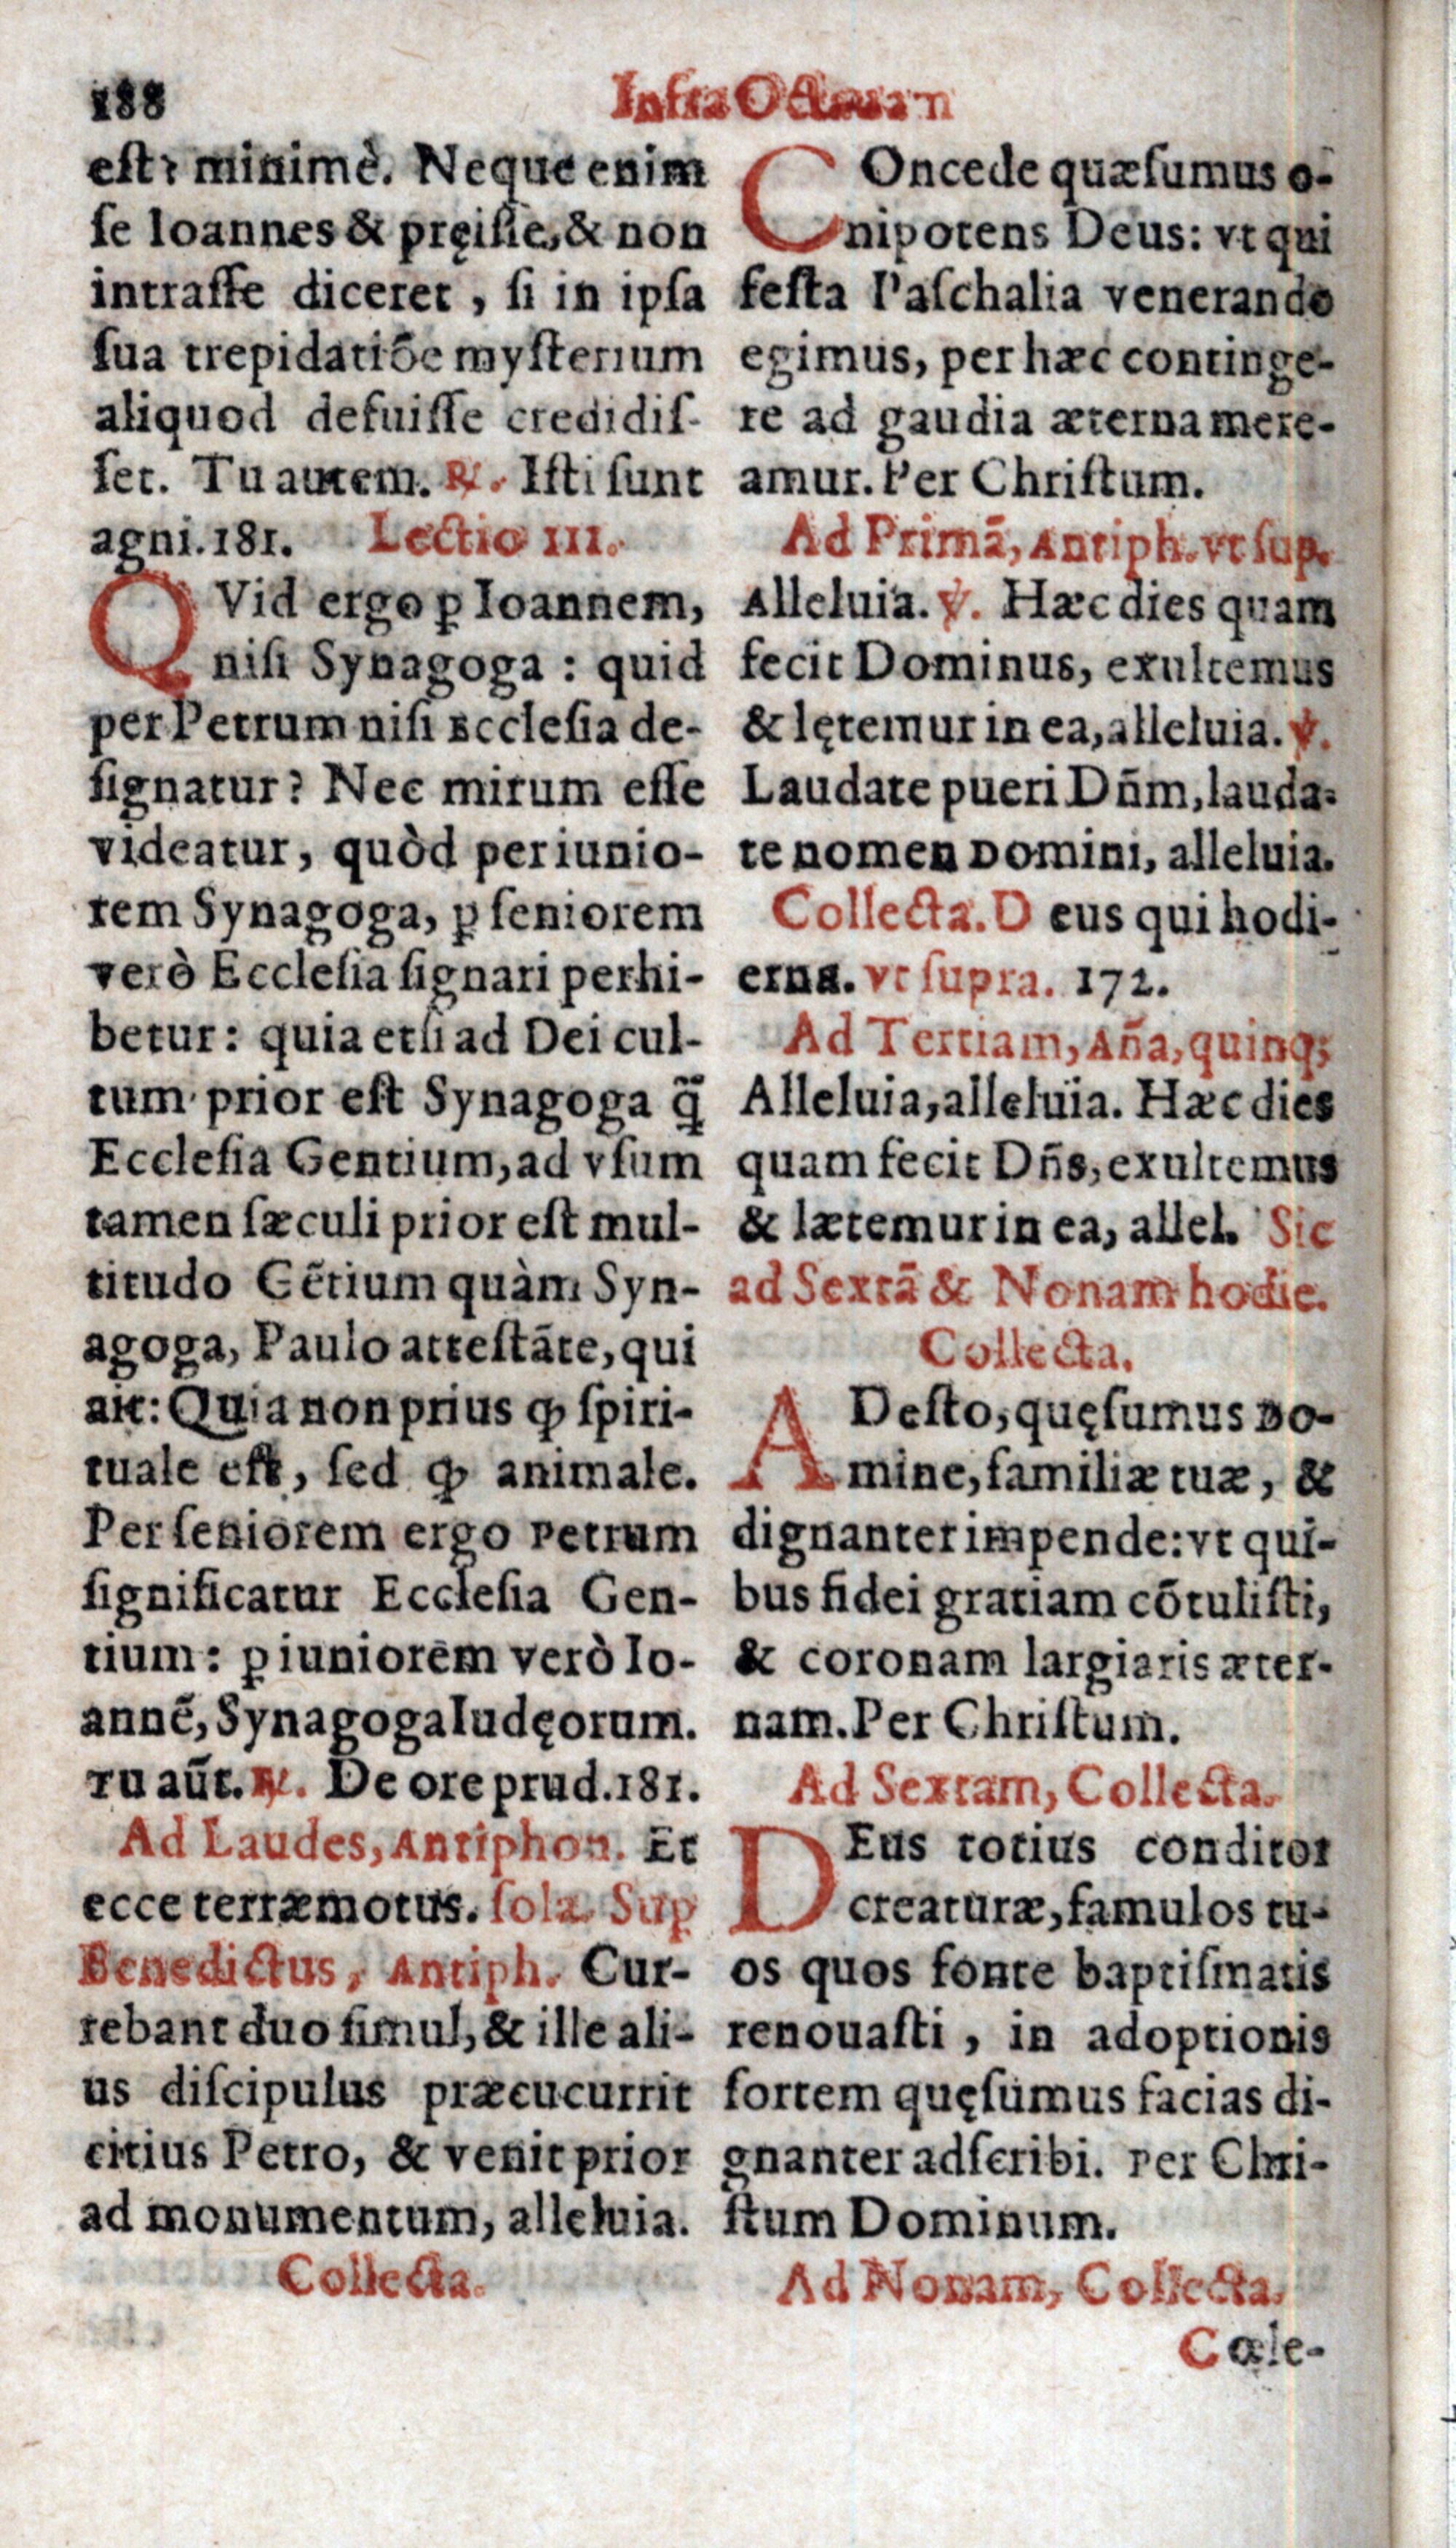 188
Infra Octauam
eſt? minimè. Neque enim
ſe Ioannes & pręiſſe, & non
intraſſe diceret, ſi in ipſa
ſua trepidatiõe myſterium
aliquod defuiſſe credidiſ-
ſet. Tu autem. ℟. Iſti ſunt
agni. 181. Lectio III.
QVid ergo ꝑ Ioannem,
niſi Synagoga : quid
per Petrum niſi Eccleſia de-
ſignatur? Nec mirum eſſe
videatur, quòd per iunio-
rem Synagoga, ꝑ ſeniorem
verò Eccleſia ſignari perhi-
betur: quia etſi ad Dei cul-
tum prior eſt Synagoga q̃
Eccleſia Gentium, ad vſum
tamen ſæculi prior eſt mul-
titudo Gẽtium quàm Syn-
agoga, Paulo atteſtãte, qui
ait: Quia non prius ꝙ ſpiri-
tuale eſt, ſed ꝙ animale.
Per ſeniorem ergo Petrum
ſignificatur Eccleſia Gen-
tium: ꝑ iuniorem verò Io-
annẽ, Synagoga Iudęorum.
Tu aũt. ℟. De ore prud. 181.
Ad Laudes, Antiphon. Et
ecce terræmotus. ſola. Sup
Benedictus, Antiph. Cur-
rebant duo ſimul, & ille ali-
us diſcipulus præcucurrit
citius Petro, & venit prior
ad monumentum, alleluia.
Collecta.
COncede quæſumus o-
nipotens Deus: vt qui
feſta Paſchalia venerando
egimus, per hæc continge-
re ad gaudia æterna mere-
amur. Per Chriſtum.
Ad Primã, Antiph. vt ſup.
Alleluia. ℣. Hæc dies quam
fecit Dominus, exultemus
& lętemur in ea, alleluia. ℣.
Laudate pueri Dñm, lauda-
te nomen Domini, alleluia.
Collecta. Deus qui hodi-
erna. vt ſupra. 172.
Ad Tertiam, Aña, quinq;
Alleluia, alleluia. Hæc dies
quam fecit Dñs, exultemus
& lætemur in ea, allel. Sic
ad Sextã & Nonam hodie.
Collecta.
ADeſto, quęſumus Do-
mine, familiæ tuæ, &
dignanter impende: vt qui-
bus fidei gratiam cõtuliſti,
& coronam largiaris æter-
nam. Per Chriſtum.
Ad Sextam, Collecta.
DEus totius conditor
creaturæ, famulos tu-
os quos fonte baptiſmatis
renouaſti, in adoptionis
ſortem quęſumus facias di-
gnanter adſcribi. Per Chri-
ſtum Dominum.
Ad Nonam, Collecta.
Cœle-